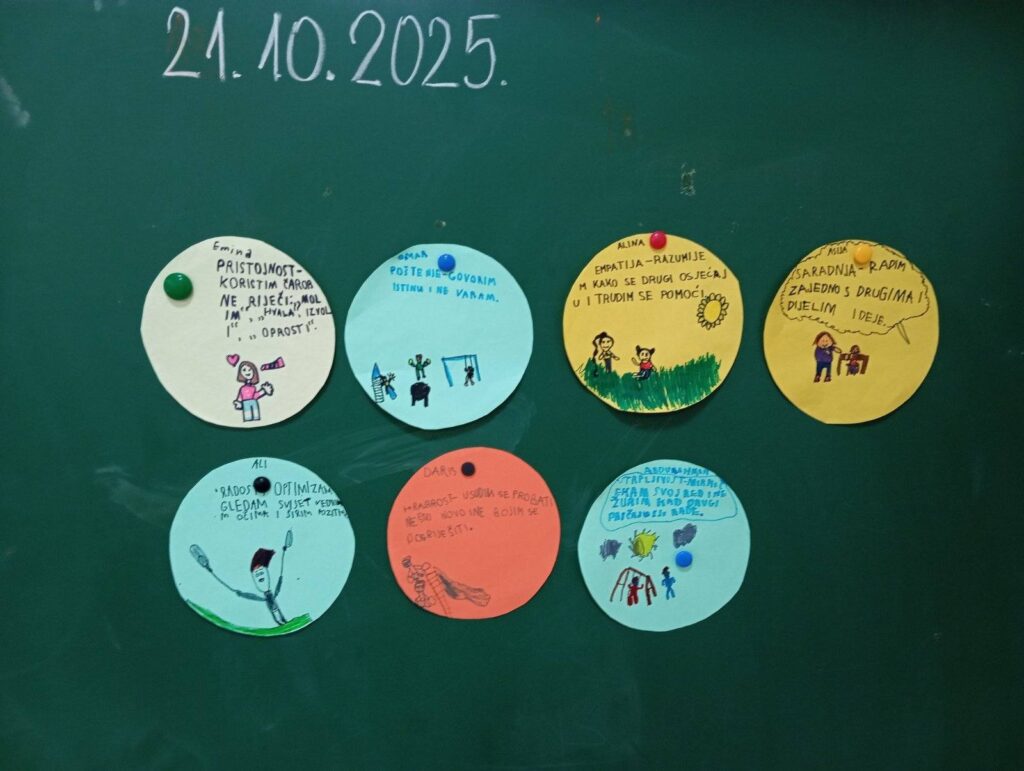 21.10.2025.
Emina
PRISTOJNOST-
KORISTIM ČAROB
NE RIJEČI: „MOL
IM“, „HVALA“, IZVOL
I“, „OPROSTI“.
OMAR
POŠTENJE-GOVORIM
ISTINU I NE VARAM.
ALINA
EMPATIJA-RAZUMIJE
M KAKO SE DRUGI OSJEĆAJ
U I TRUDIM SE POMOĆI.
ASIJA
SARADNJA-RADIM
ZAJEDNO S DRUGIMA I
DIJELIM IDEJE.
ALI
RADOST OPTIMIZAM
GLEDAM SVIJET VEDRI
M OČIMA I ŠIRIM POZITIV
DARIS
HRABROST-USUDIM SE PROBATI
NEŠTO NOVO I NE BOJIM SE
POGRIJEŠITI.
ABDURAHMAN
STRPLJIVOST-MIRNO Č
EKAM SVOJ RED I NE
ŽURIM KAD DRUGI
PRIČAJU ILI RADE.